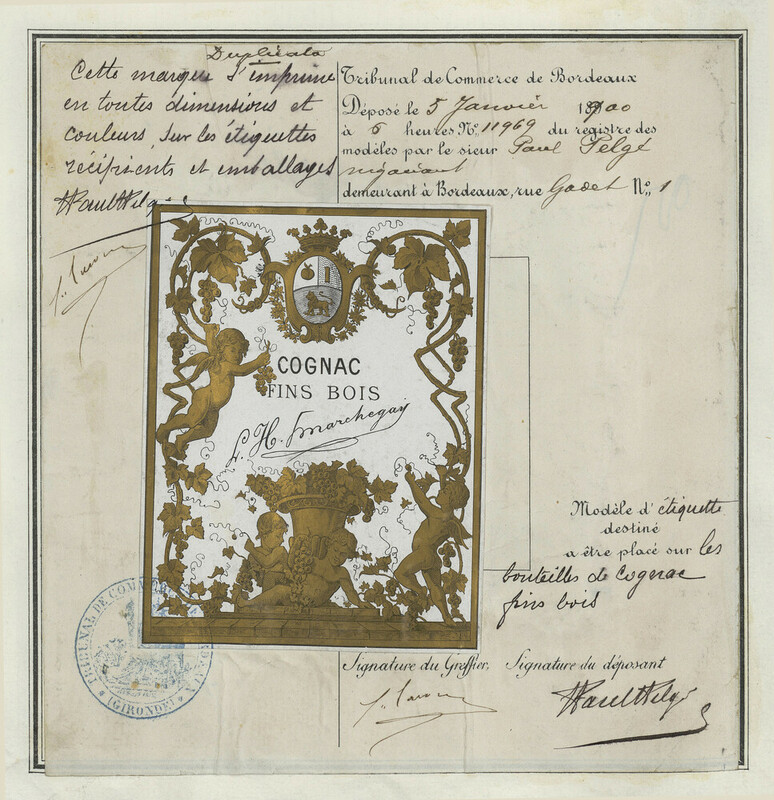 Duplicata
Cette marque s'imprime
en toutes dimensions et
couleurs, sur les étiquettes
récipients et emballages
Tribunal de Commerce de Bordeaux
Déposé le 5 Janvier 1900
à 6 heures No. 11969 du registre des
modèles par le sieur Paul Pelgé
négociant
demeurant à Bordeaux, rue Gadet No. 1
COGNAC
FINS BOIS
L. H. Marchegay
Modèle d'étiquette
destiné
a être placé sur les
bouteilles de Cognac
fins bois
TRIBUNAL DE COMMERCE
(GIRONDE)
Signature du Greffier, Signature du déposant